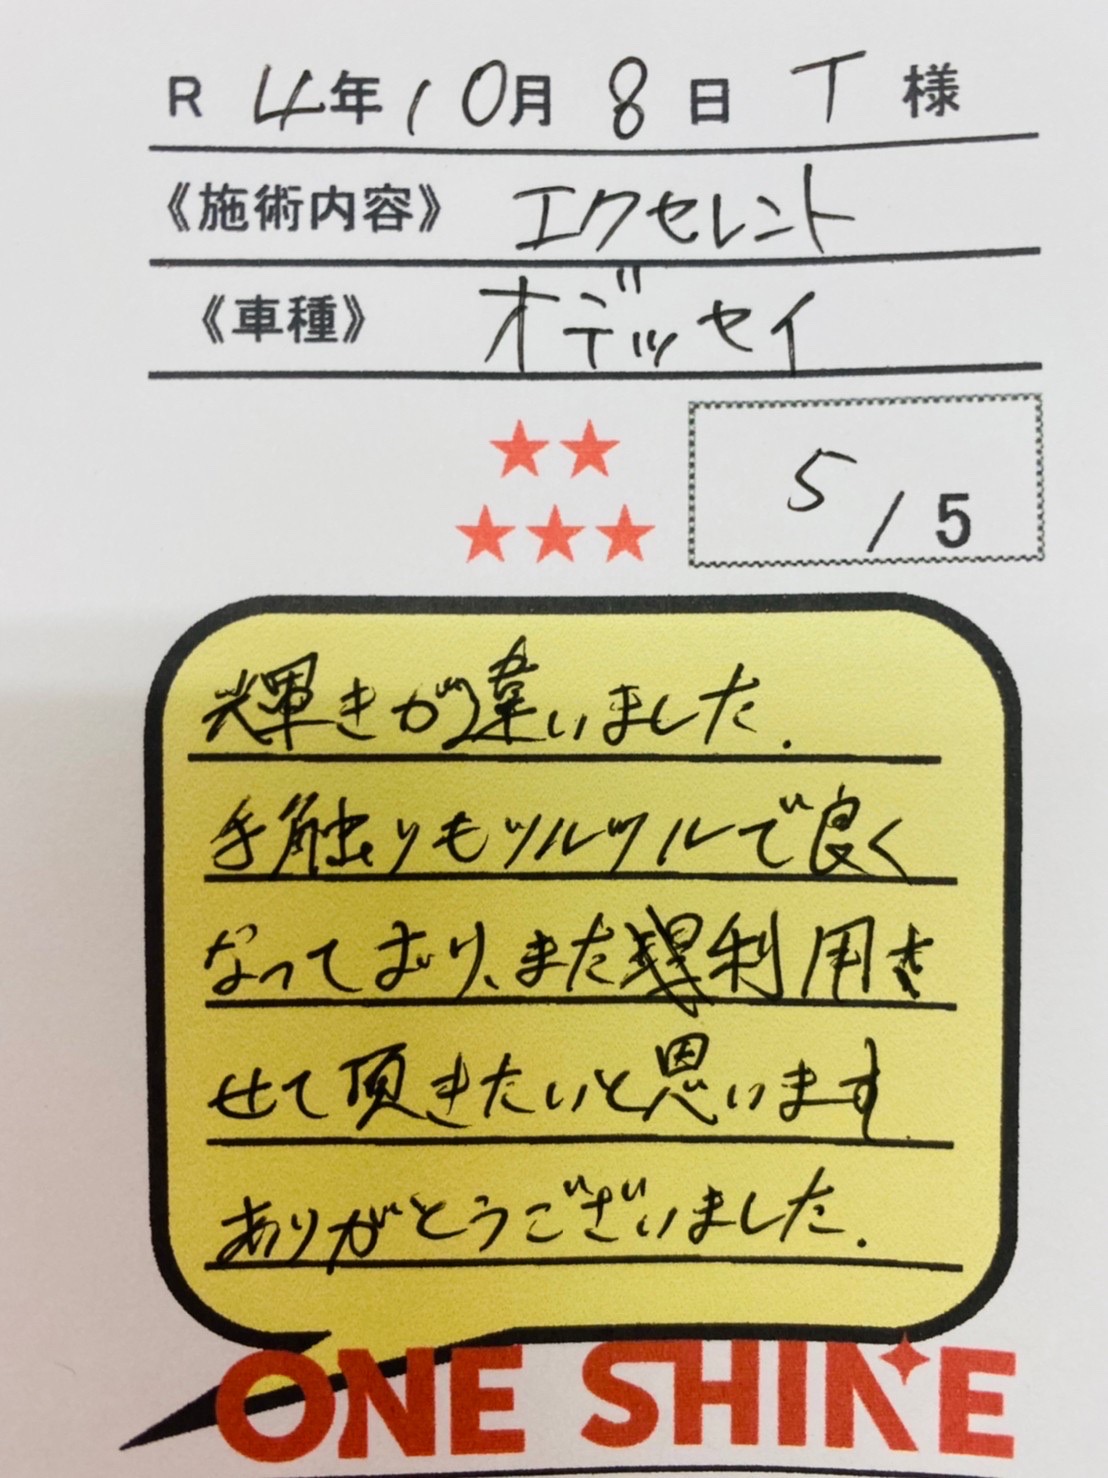 R 4年10月8日 T 様
《施術内容》 エクセレント
《車種》 オデッセイ
5/5
輝きが違いました.
手触りもツルツルで良く
なっており、また利用さ
せて頂きたいと思います.
ありがとうございました.
ONE SHINE